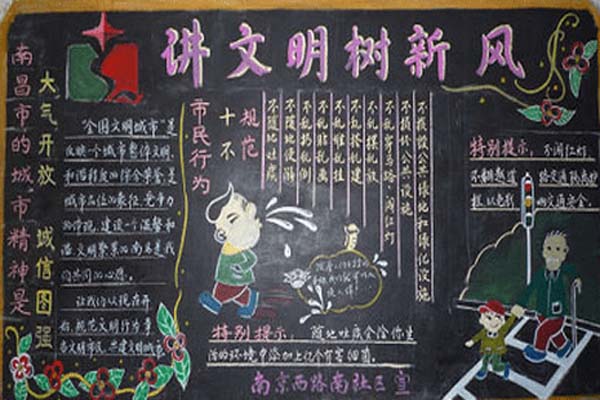 讲文明树新风
南昌市的城市精神是
大气开放 诚信图强
"全国文明城市"是
反映一个城市整体文明
和谐程度的综合荣誉是
城市品位的象征、竞争力
的体现,建设一个温馨和
谐文明繁荣的南昌是我
们共同的心愿。
让我们从现在开
始,规范文明行为争
当文明市民,共建文明城市
市民行为
十不
规范
不随地吐痰
不随地便溺
不乱扔乱倒
不乱贴乱画
不乱晒乱挂
不乱搭乱建
不乱摆乱放
不乱穿马路、闯红灯
不损坏公共设施
不损毁公共绿地和绿化设施
特别提示:不闯红灯
不翻越道路交通隔离护
栏,以免影响交通安全。
特别提示:随地吐痰会给你生
活的环境中添加上亿个有害细菌
南京西路南社区宣